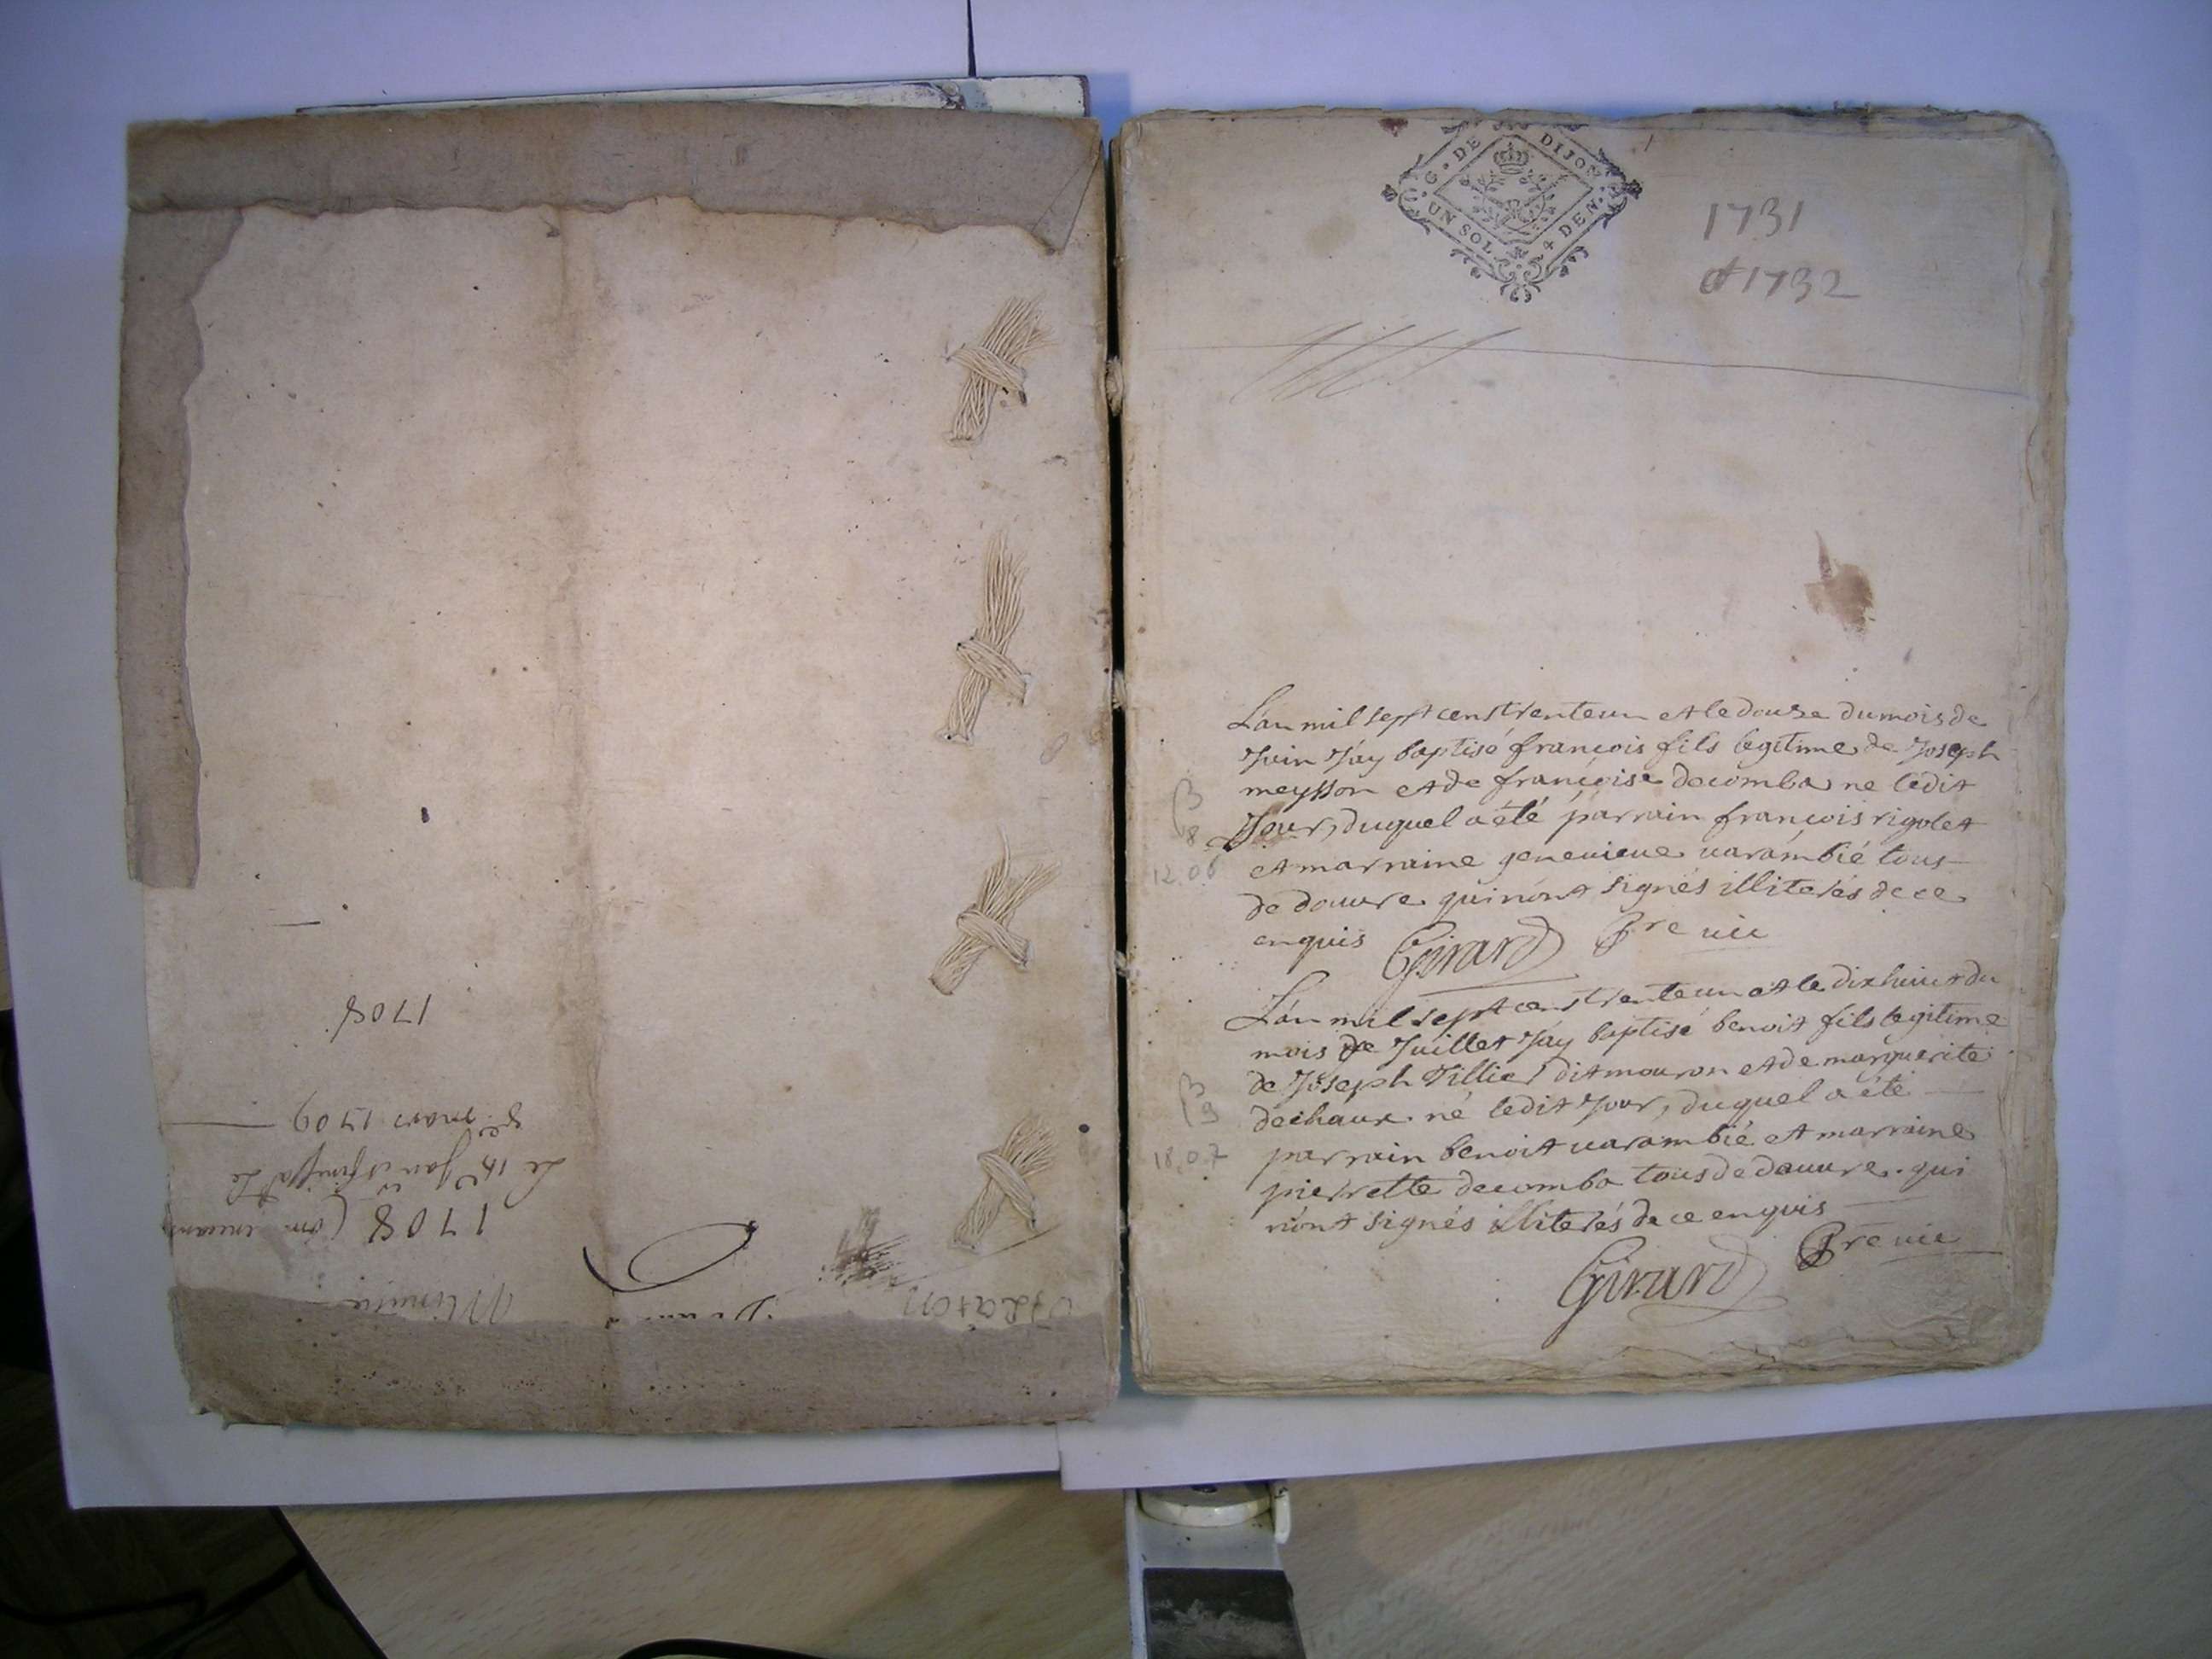 1708
1708 (
Le
mars 1709
G. DE DIJON
UN SOL 4 DEN.
1731
et 1732
L'an mil sept cens trente un et le douse du mois de
Juin J'ay baptisé françois fils legitime de Joseph
meysson et de françoise decomba ne ledit
Jour, duquel a été parrain françois rigolet
et marraine genevieve varambié tous
de dauvre qui n'ont signés illiterés de ce
enquis Girard Pre vic
L'an mil sept cens trente un et le dix huict du
mois de Juillet J'ay baptisé benoit fils legitime
de Joseph Tillier dit mouron et de marguerite
dechaux né ledit Jour, duquel a été
parrain benoit varambié et marraine
pierrette decomba tous de dauvre qui
n'ont signés illiterés de ce enquis
Girard Pre vic
B
8
12.06
B
9
18.07